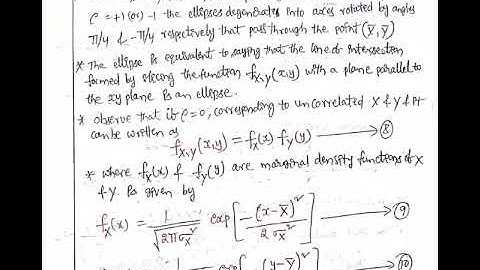 ρ = +1 (or) -1 the ellipses degenerates into axes rotated by angles
π/4 & -π/4 respectively that pass through the point (X̅, Y̅)
* The ellipse is equivalent to saying that the line of intersection
formed by slicing the function f_{X,Y}(x,y) with a plane parallel to
the xy plane is an ellipse.
* observe that if ρ=0, corresponding to uncorrelated X & Y it
can be written as
f_{X,Y}(x,y) = f_X(x) f_Y(y) → (8)
* where f_X(x) & f_Y(y) are marginal density functions of X
& Y is given by
f_X(x) = 1/√(2πσ_X²) exp[-(x-X̅)²/2σ_X²] → (9)
1 exp[-(y-Y̅)² → (10)